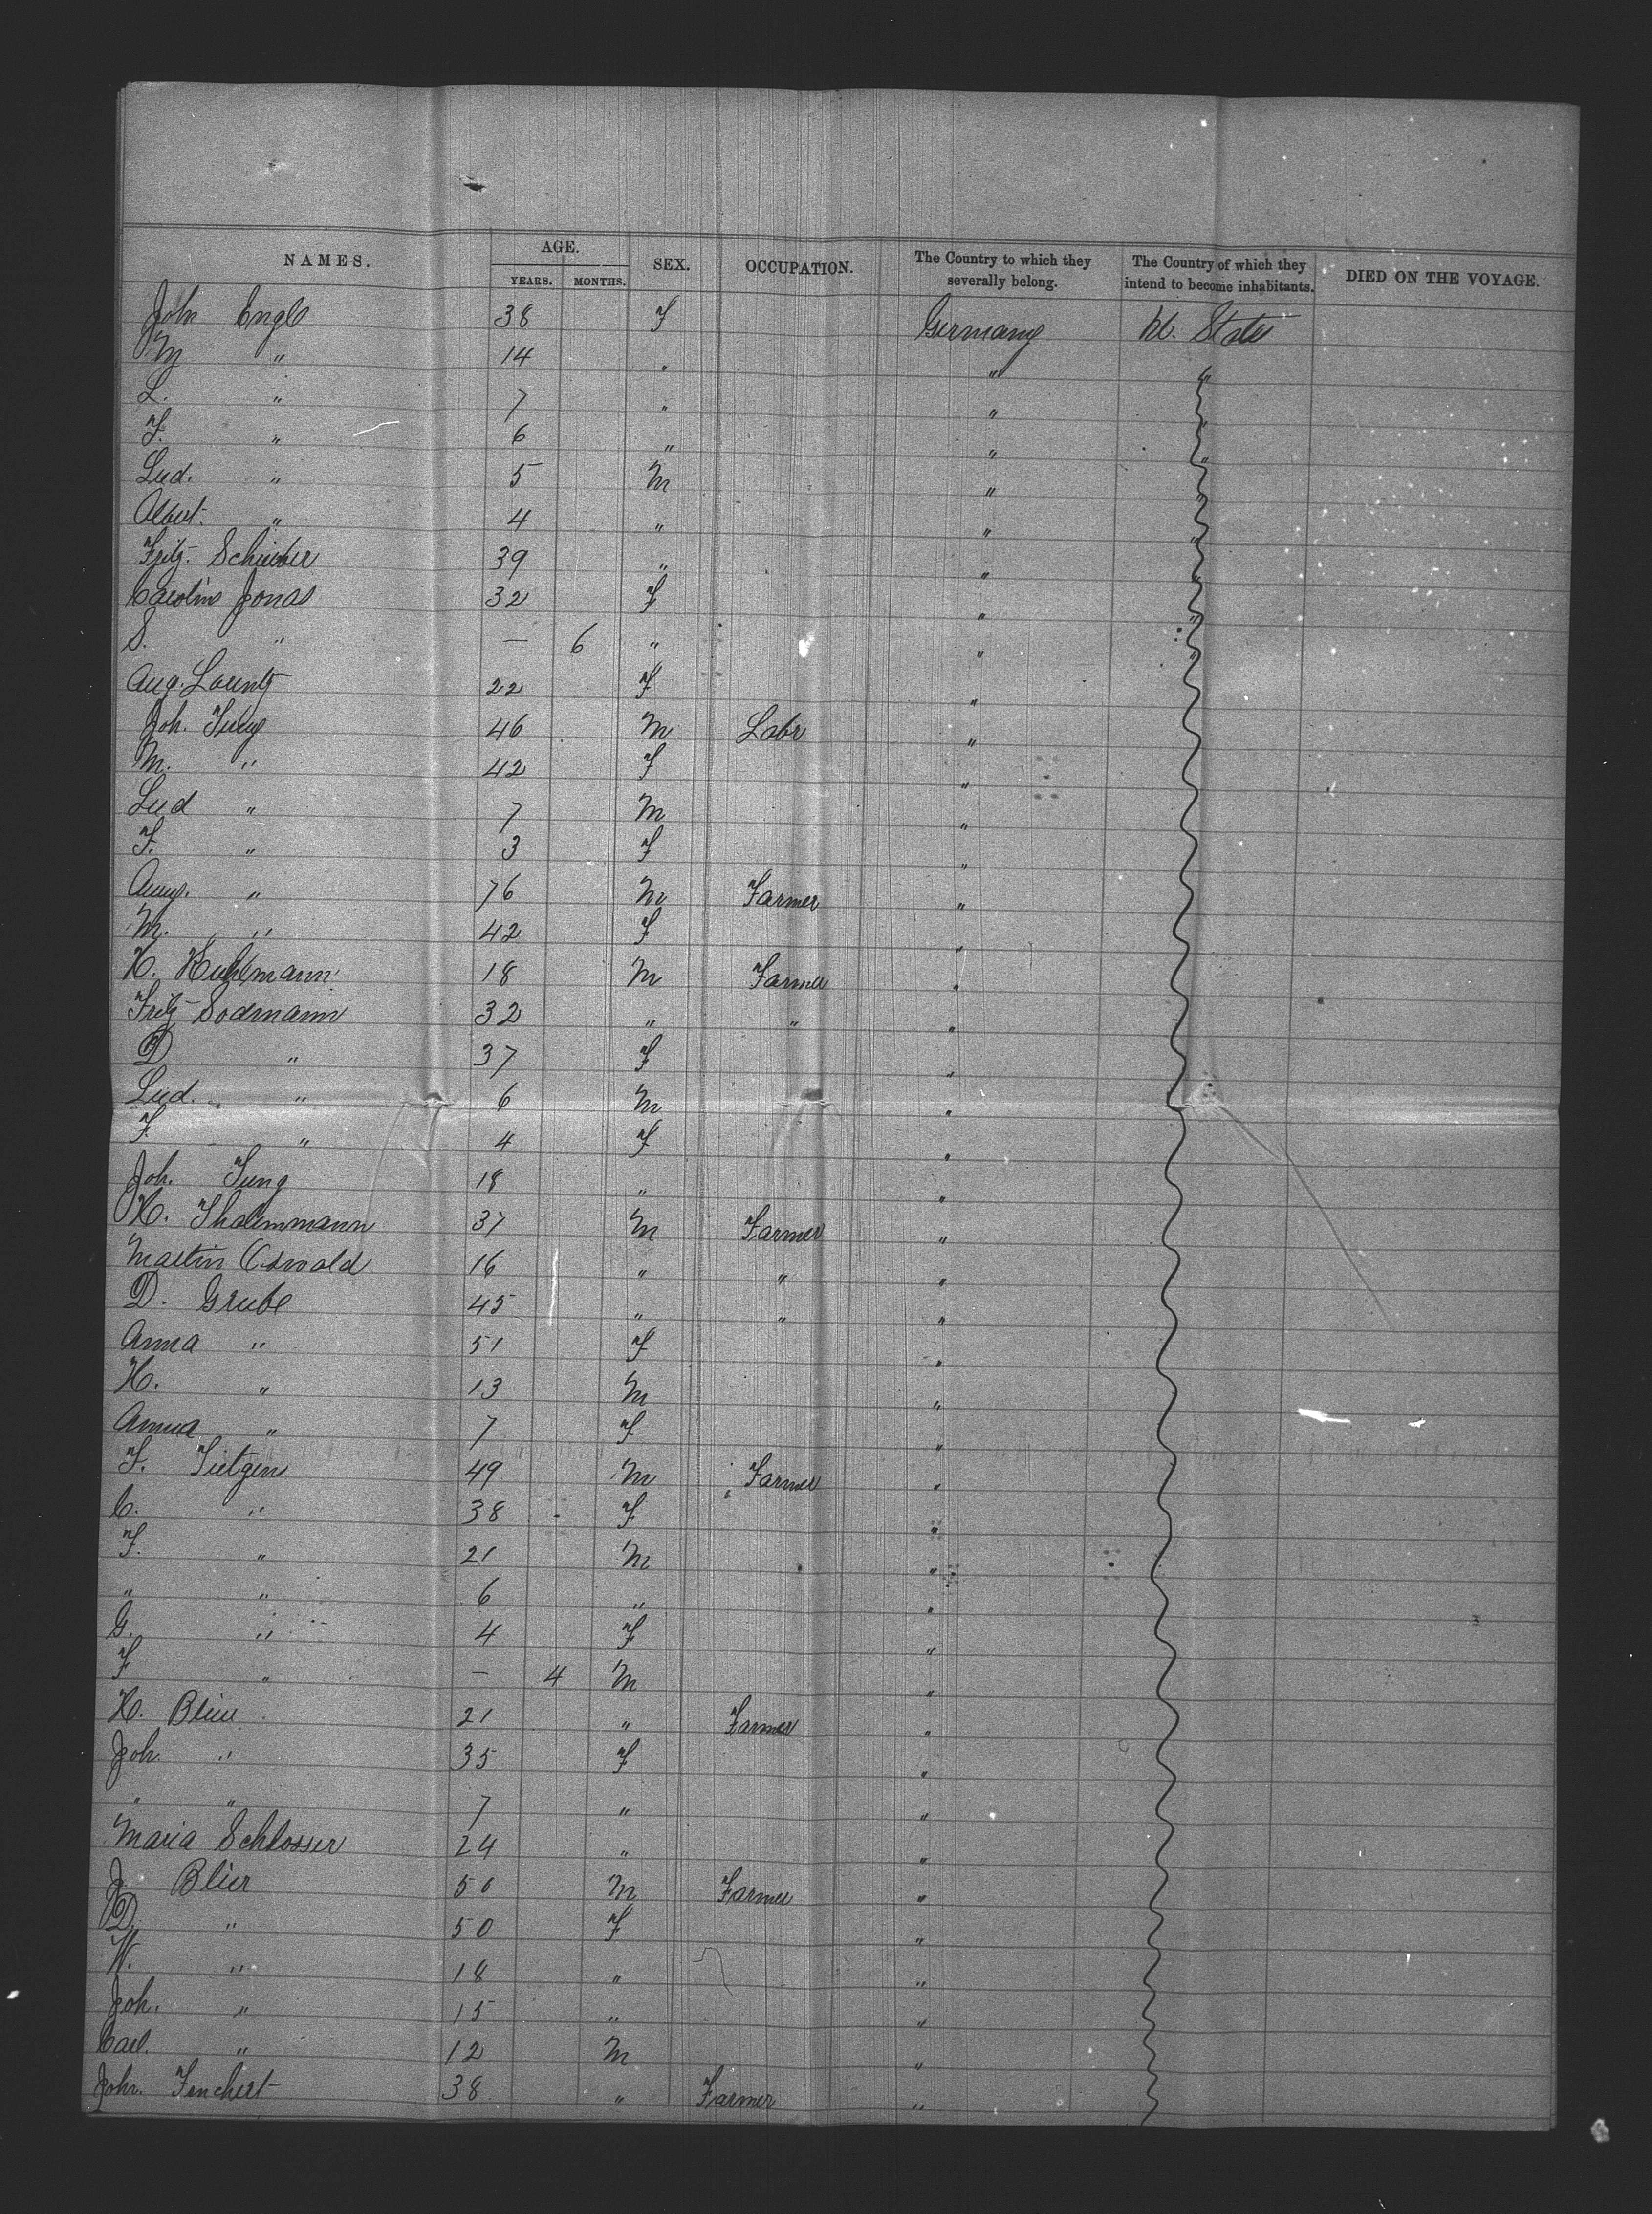 NAMES. AGE. SEX. OCCUPATION. The Country to which they severally belong. The Country of which they intend to become inhabitants. DIED ON THE VOYAGE.
YEARS. MONTHS.
John Engle 38 F Germany U. States
M " 14 " " "
L. " 7 " " "
F. " 6 " " "
Lud. " 5 M " "
Albert. " 4 " " "
Fritz. Schieber 39 " " "
Carolins Jonas 32 F " "
S. " — 6 " " "
Aug. Lorentz 22 F "
Joh. Jung 46 M Labr "
M. " 42 F "
Lud " 7 M "
F. " 3 F "
Aug. " 76 M Farmer "
M. " 42 F "
H. Kuhlmann 18 M Farmer "
Fritz Sodmann 32 " " "
D " 37 F "
Lud. " 6 M "
F. " 4 F "
Joh. Jung 18 " "
H. Thalemmann 37 M Farmer "
Martin Oswald 16 " " "
D. Grube 45 " " "
Anna " 51 F "
H. " 13 M "
Anna " 7 F "
F. Tietgen 49 M Farmer "
C. " 38 F "
F. " 21 M "
" " 6 " "
G. " 4 F "
F " — 4 M "
H. 21 " Farmer "
Joh. " 35 F "
" " 7 " "
Maria Schlosser 24 " "
J. Blier 50 M Farmer "
D. " 50 F "
W. " 18 " "
Joh. " 15 " "
Carl. " 12 M "
Joh. 38 " Farmer "